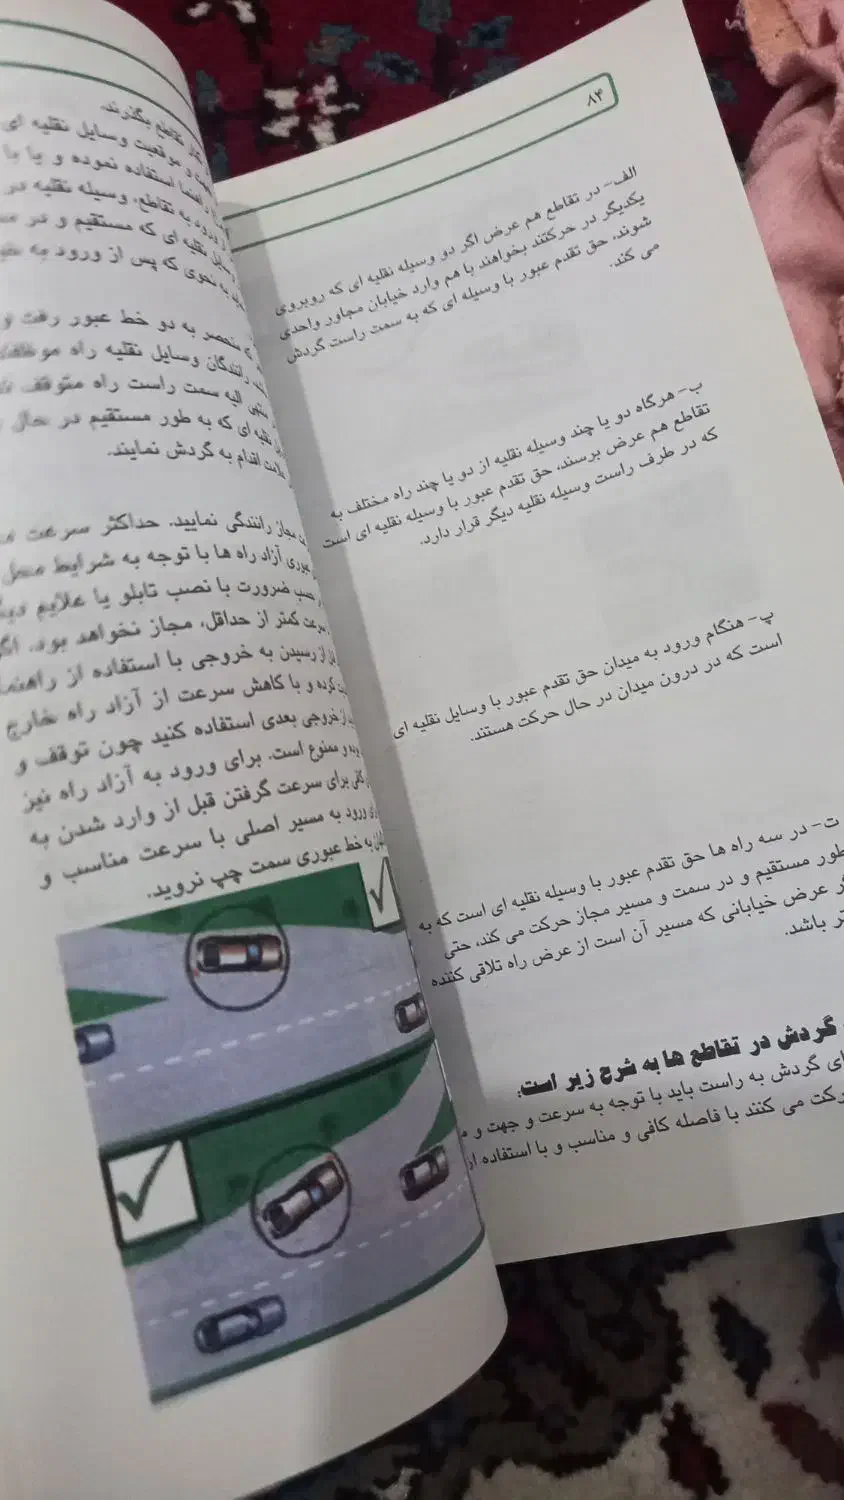 ۸۴
الف- در تقاطع هم عرض اگر دو وسیله نقلیه ای که روبروی
یکدیگر در حرکتند بخواهند با هم وارد خیابان مجاور واحدی
شوند، حق تقدم عبور با وسیله ای که به سمت راست گردش
می کند.
ب- هرگاه دو یا چند وسیله نقلیه از دو یا چند راه مختلف به
تقاطع هم عرض برسند، حق تقدم عبور با وسیله نقلیه ای است
که در طرف راست وسیله نقلیه دیگر قرار دارد.
پ- هنگام ورود به میدان حق تقدم عبور با وسایل نقلیه ای
است که در درون میدان در حال حرکت هستند.
ت- در سه راه ها حق تقدم عبور با وسیله نقلیه ای است که به
طور مستقیم و در سمت و مسیر مجاز حرکت می کند، حتی
عرض خیابانی که مسیر آن است از عرض راه تلاقی کننده
باشد.
گردش در تقاطع ها به شرح زیر است:
گردش به راست باید با توجه به سرعت و جهت و
می کنند با فاصله کافی و مناسب و با استفاده از
تقاطع بگذرند.
و موقعیت وسایل نقلیه ای
راهنما استفاده نموده و یا با
ورود به تقاطع، وسیله نقلیه در
نقلیه ای که مستقیم و در
به نحوی که پس از ورود به
که منحصر به دو خط عبور رفت و
رانندگان وسایل نقلیه راه
الیه سمت راست راه متوقف
نقلیه ای که به طور مستقیم در حال
اقدام به گردش نمایند.
مجاز رانندگی نمایید. حداکثر سرعت
عبوری آزاد راه ها با توجه به شرایط محل
حسب ضرورت با نصب تابلو یا علایم
سرعت کمتر از حداقل، مجاز نخواهد بود. اگر
از رسیدن به خروجی با استفاده از راهنما
کرده و با کاهش سرعت از آزاد راه خارج
از خروجی بعدی استفاده کنید چون توقف و
بوده و ممنوع است. برای ورود به آزاد راه نیز
کافی برای سرعت گرفتن قبل از وارد شدن به
ورود به مسیر اصلی با سرعت مناسب و
به خط عبوری سمت چپ نروید.